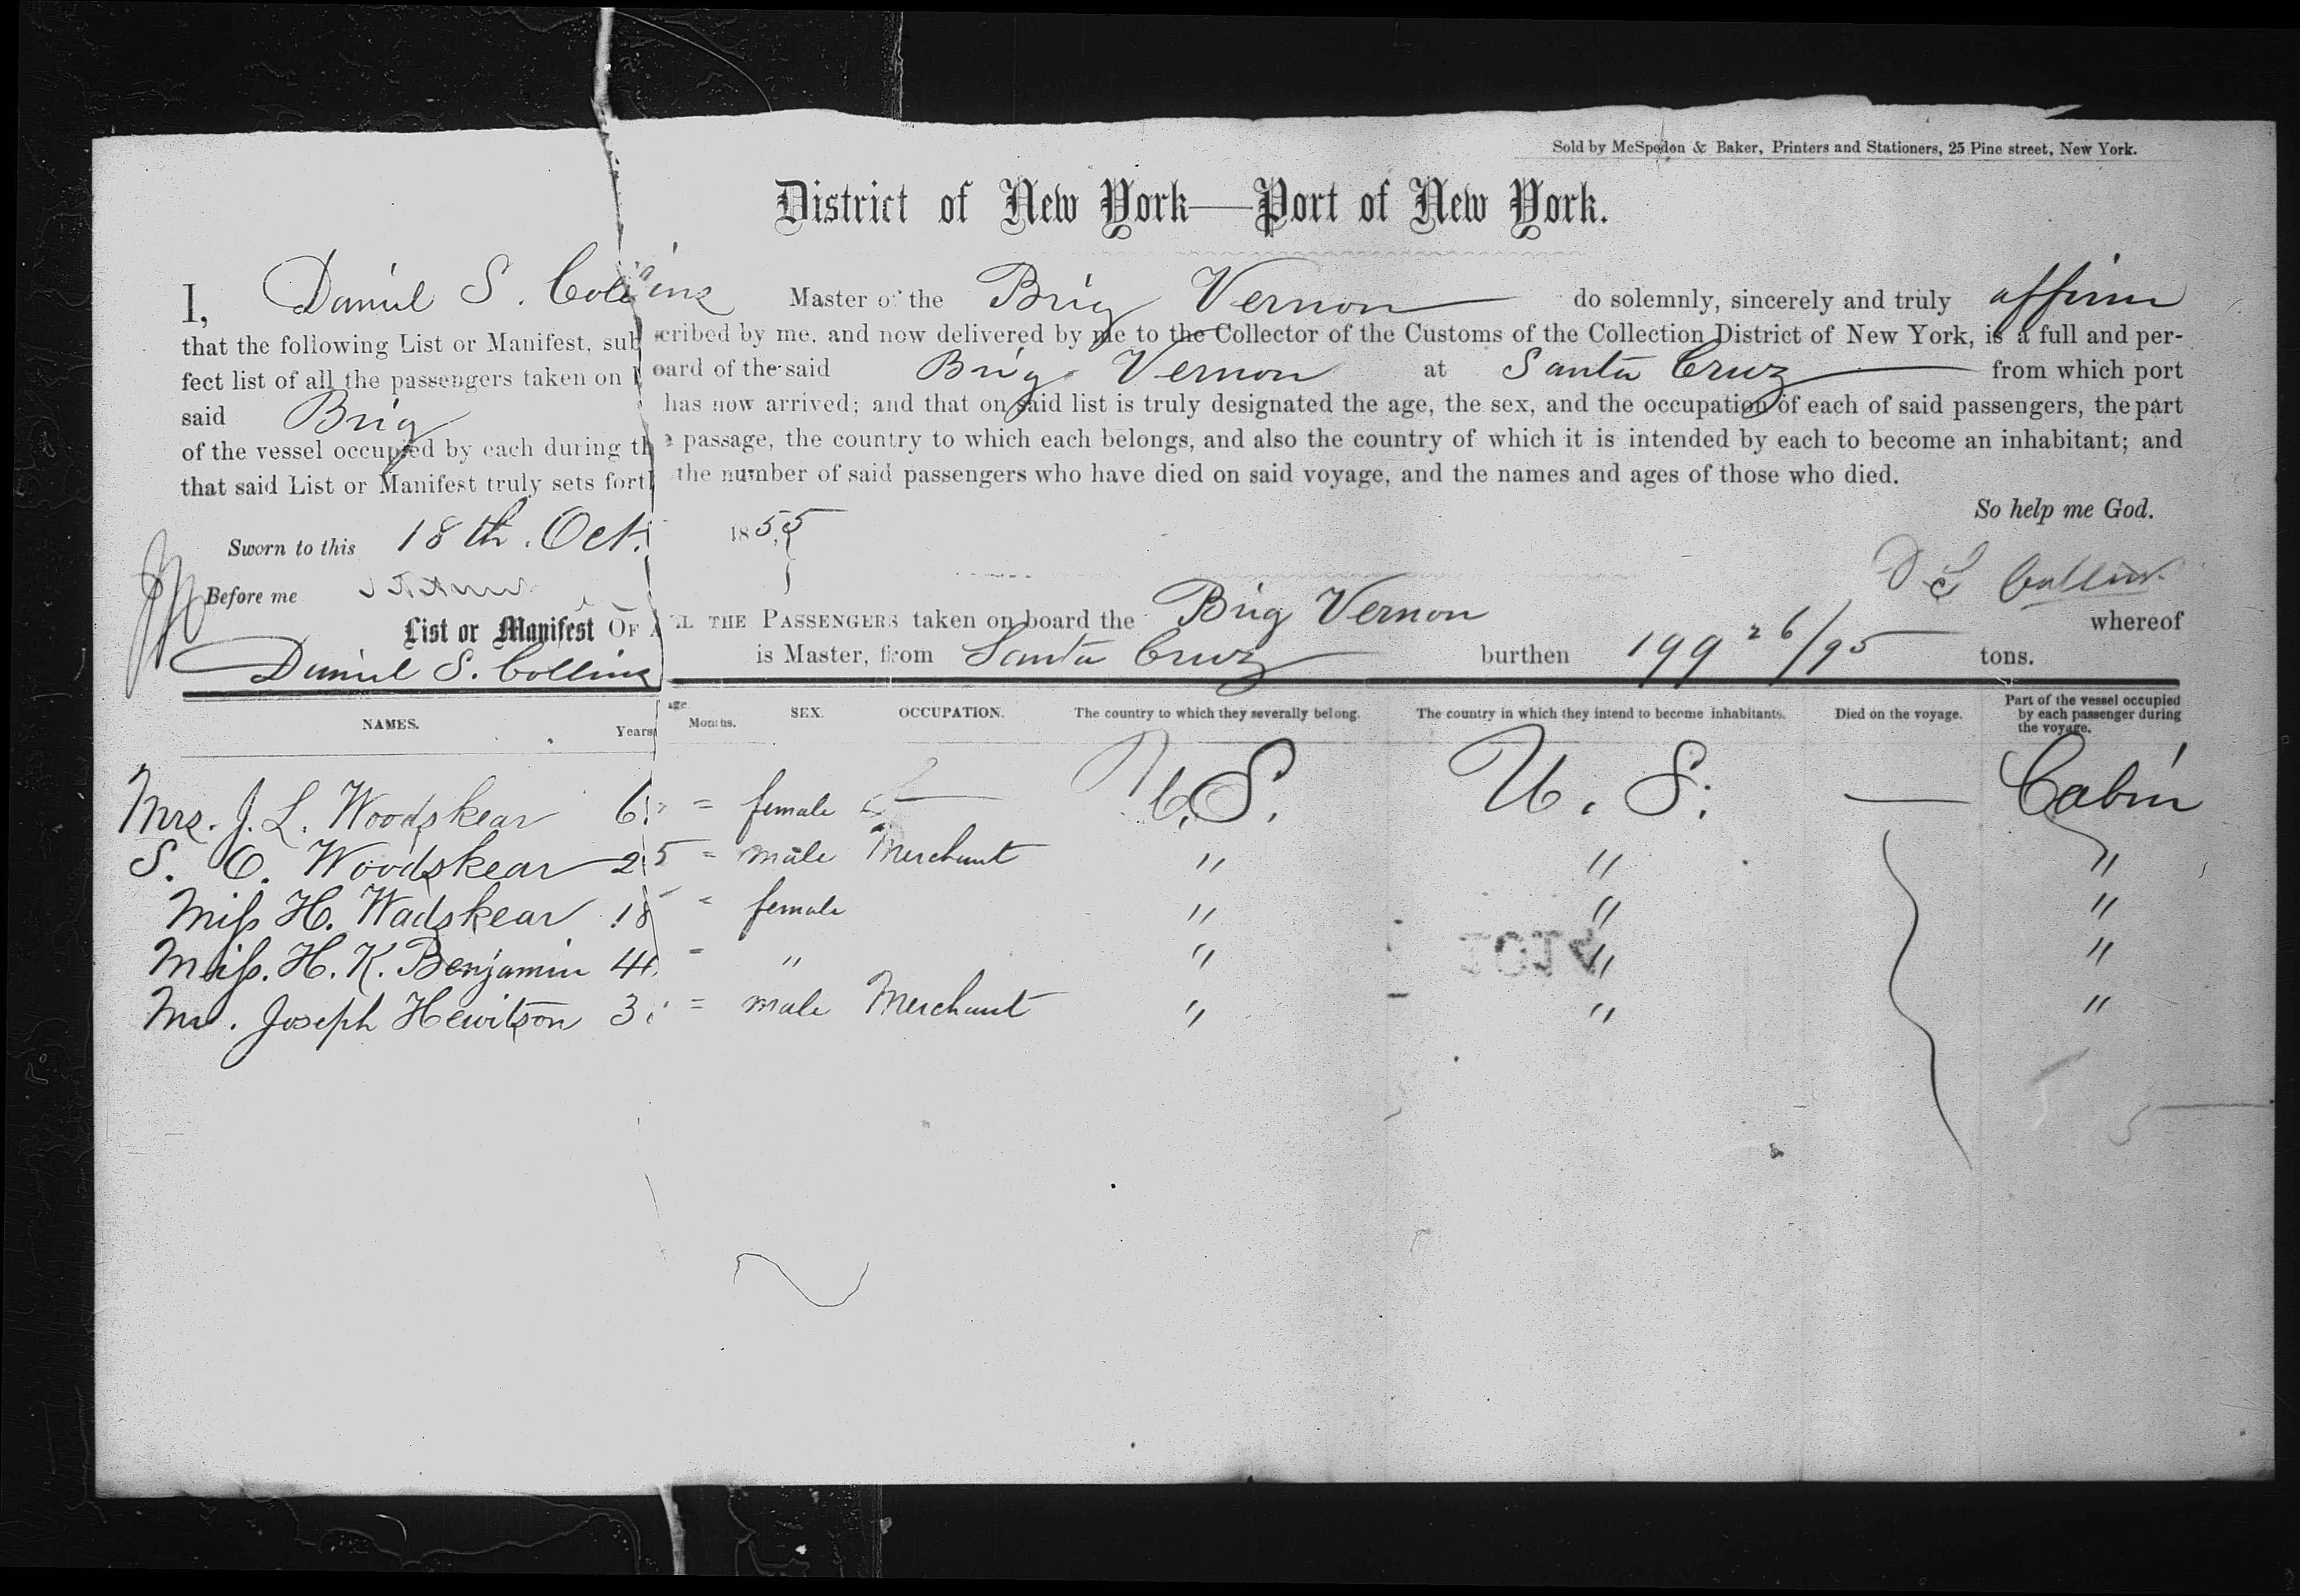 Sold by McSpedon & Baker, Printers and Stationers, 25 Pine street, New York.
District of New York—Port of New York.
I, Daniel S. Collins Master of the Brig Vernon do solemnly, sincerely and truly affirm
that the following List or Manifest, subscribed by me, and now delivered by me to the Collector of the Customs of the Collection District of New York, is a full and per-
fect list of all the passengers taken on board of the said Brig Vernon at Santa Cruz from which port
said Brig has now arrived; and that on said list is truly designated the age, the sex, and the occupation of each of said passengers, the part
of the vessel occupied by each during the passage, the country to which each belongs, and also the country of which it is intended by each to become an inhabitant; and
that said List or Manifest truly sets forth the number of said passengers who have died on said voyage, and the names and ages of those who died.
So help me God.
Sworn to this 18th. Oct. 1855
D S Collins
Before me
List or Manifest OF ALL THE PASSENGERS taken on board the Brig Vernon whereof
Daniel S. Collins is Master, from Santa Cruz burthen 199 26/95 tons.
NAMES. Years age Months. SEX. OCCUPATION. The country to which they severally belong. The country in which they intend to become inhabitants. Died on the voyage. Part of the vessel occupied by each passenger during the voyage.
Mrs. J. L. Woodskear = female — U.S. U. S. — Cabin
S. C. Woodskear 25 = male Merchant " " "
Miss H. Wadskear 18 " female " " "
Miss. H. K. Benjamin " " " " "
Mr. Joseph Hewitson = male Merchant " " "